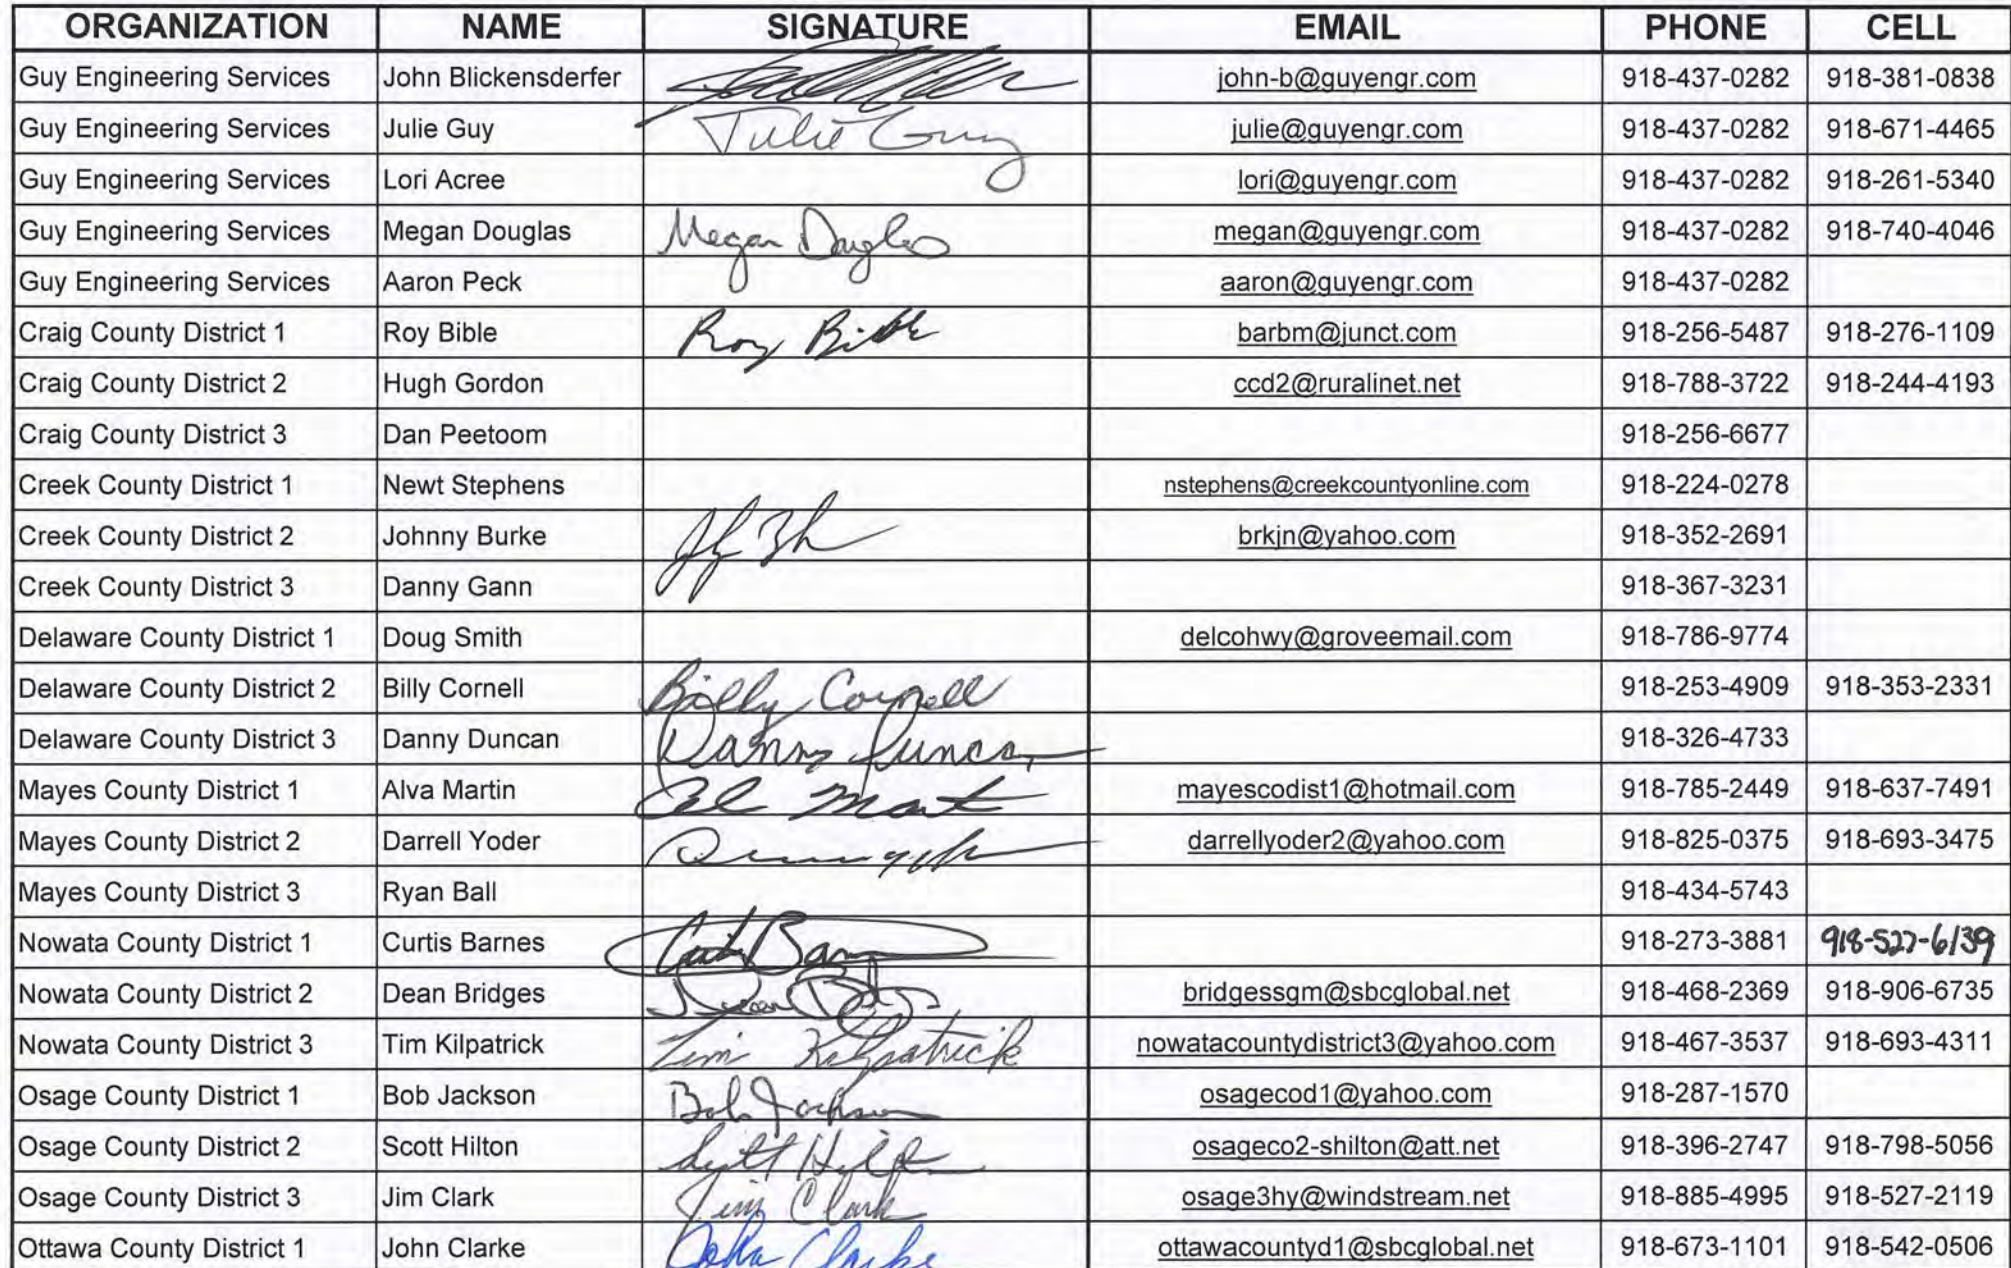 ORGANIZATION NAME SIGNATURE EMAIL PHONE CELL
Guy Engineering Services John Blickensderfer john-b@guyengr.com 918-437-0282 918-381-0838
Guy Engineering Services Julie Guy Julie Guy julie@guyengr.com 918-437-0282 918-671-4465
Guy Engineering Services Lori Acree lori@guyengr.com 918-437-0282 918-261-5340
Guy Engineering Services Megan Douglas Megan Douglas megan@guyengr.com 918-437-0282 918-740-4046
Guy Engineering Services Aaron Peck aaron@guyengr.com 918-437-0282
Craig County District 1 Roy Bible Roy Bible barbm@junct.com 918-256-5487 918-276-1109
Craig County District 2 Hugh Gordon ccd2@ruralinet.net 918-788-3722 918-244-4193
Craig County District 3 Dan Peetoom 918-256-6677
Creek County District 1 Newt Stephens nstephens@creekcountyonline.com 918-224-0278
Creek County District 2 Johnny Burke brkjn@yahoo.com 918-352-2691
Creek County District 3 Danny Gann 918-367-3231
Delaware County District 1 Doug Smith delcohwy@groveemail.com 918-786-9774
Delaware County District 2 Billy Cornell Billy Cornell 918-253-4909 918-353-2331
Delaware County District 3 Danny Duncan Danny Duncan 918-326-4733
Mayes County District 1 Alva Martin mayescodist1@hotmail.com 918-785-2449 918-637-7491
Mayes County District 2 Darrell Yoder darrellyoder2@yahoo.com 918-825-0375 918-693-3475
Mayes County District 3 Ryan Ball 918-434-5743
Nowata County District 1 Curtis Barnes 918-273-3881 918-527-6139
Nowata County District 2 Dean Bridges bridgessgm@sbcglobal.net 918-468-2369 918-906-6735
Nowata County District 3 Tim Kilpatrick Tim Kilpatrick nowatacountydistrict3@yahoo.com 918-467-3537 918-693-4311
Osage County District 1 Bob Jackson Bob Jackson osagecod1@yahoo.com 918-287-1570
Osage County District 2 Scott Hilton osageco2-shilton@att.net 918-396-2747 918-798-5056
Osage County District 3 Jim Clark Jim Clark osage3hy@windstream.net 918-885-4995 918-527-2119
Ottawa County District 1 John Clarke John Clarke ottawacountyd1@sbcglobal.net 918-673-1101 918-542-0506